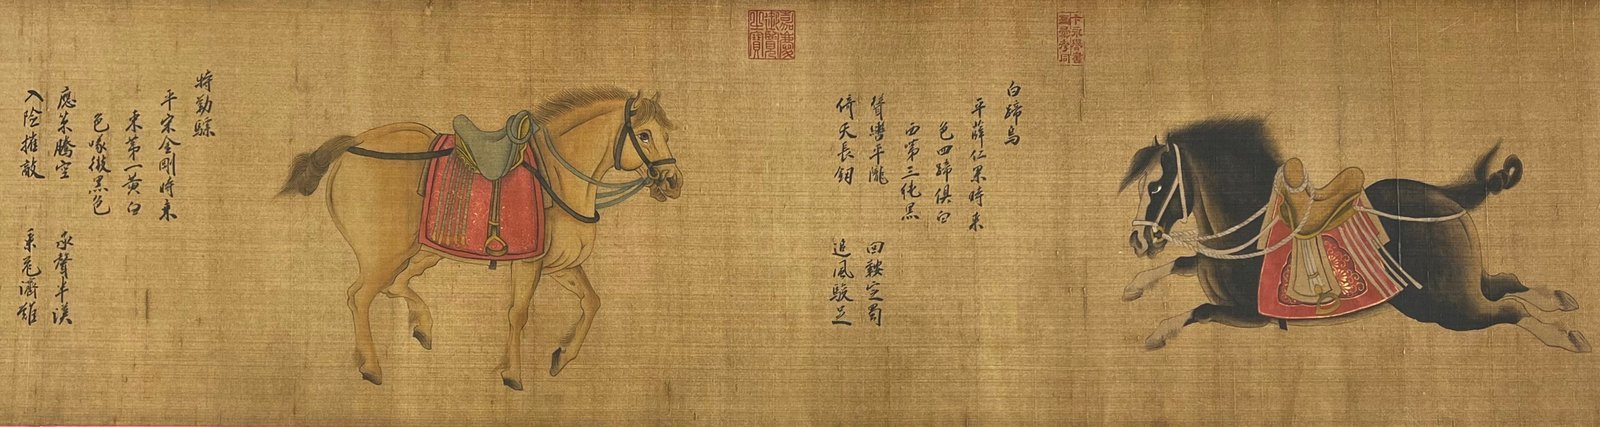 白蹄烏
平薛仁果時乘
色四蹄俱白
西第三純黑
聳轡平隴 回鞍定蜀
倚天長釰 追風駿足
嘉慶御覽之寶
特勤驃
平宋金剛時乘
東第一黄白
色喙微黑色
應策騰空 承聲半漢
入險摧敵 乘危濟難